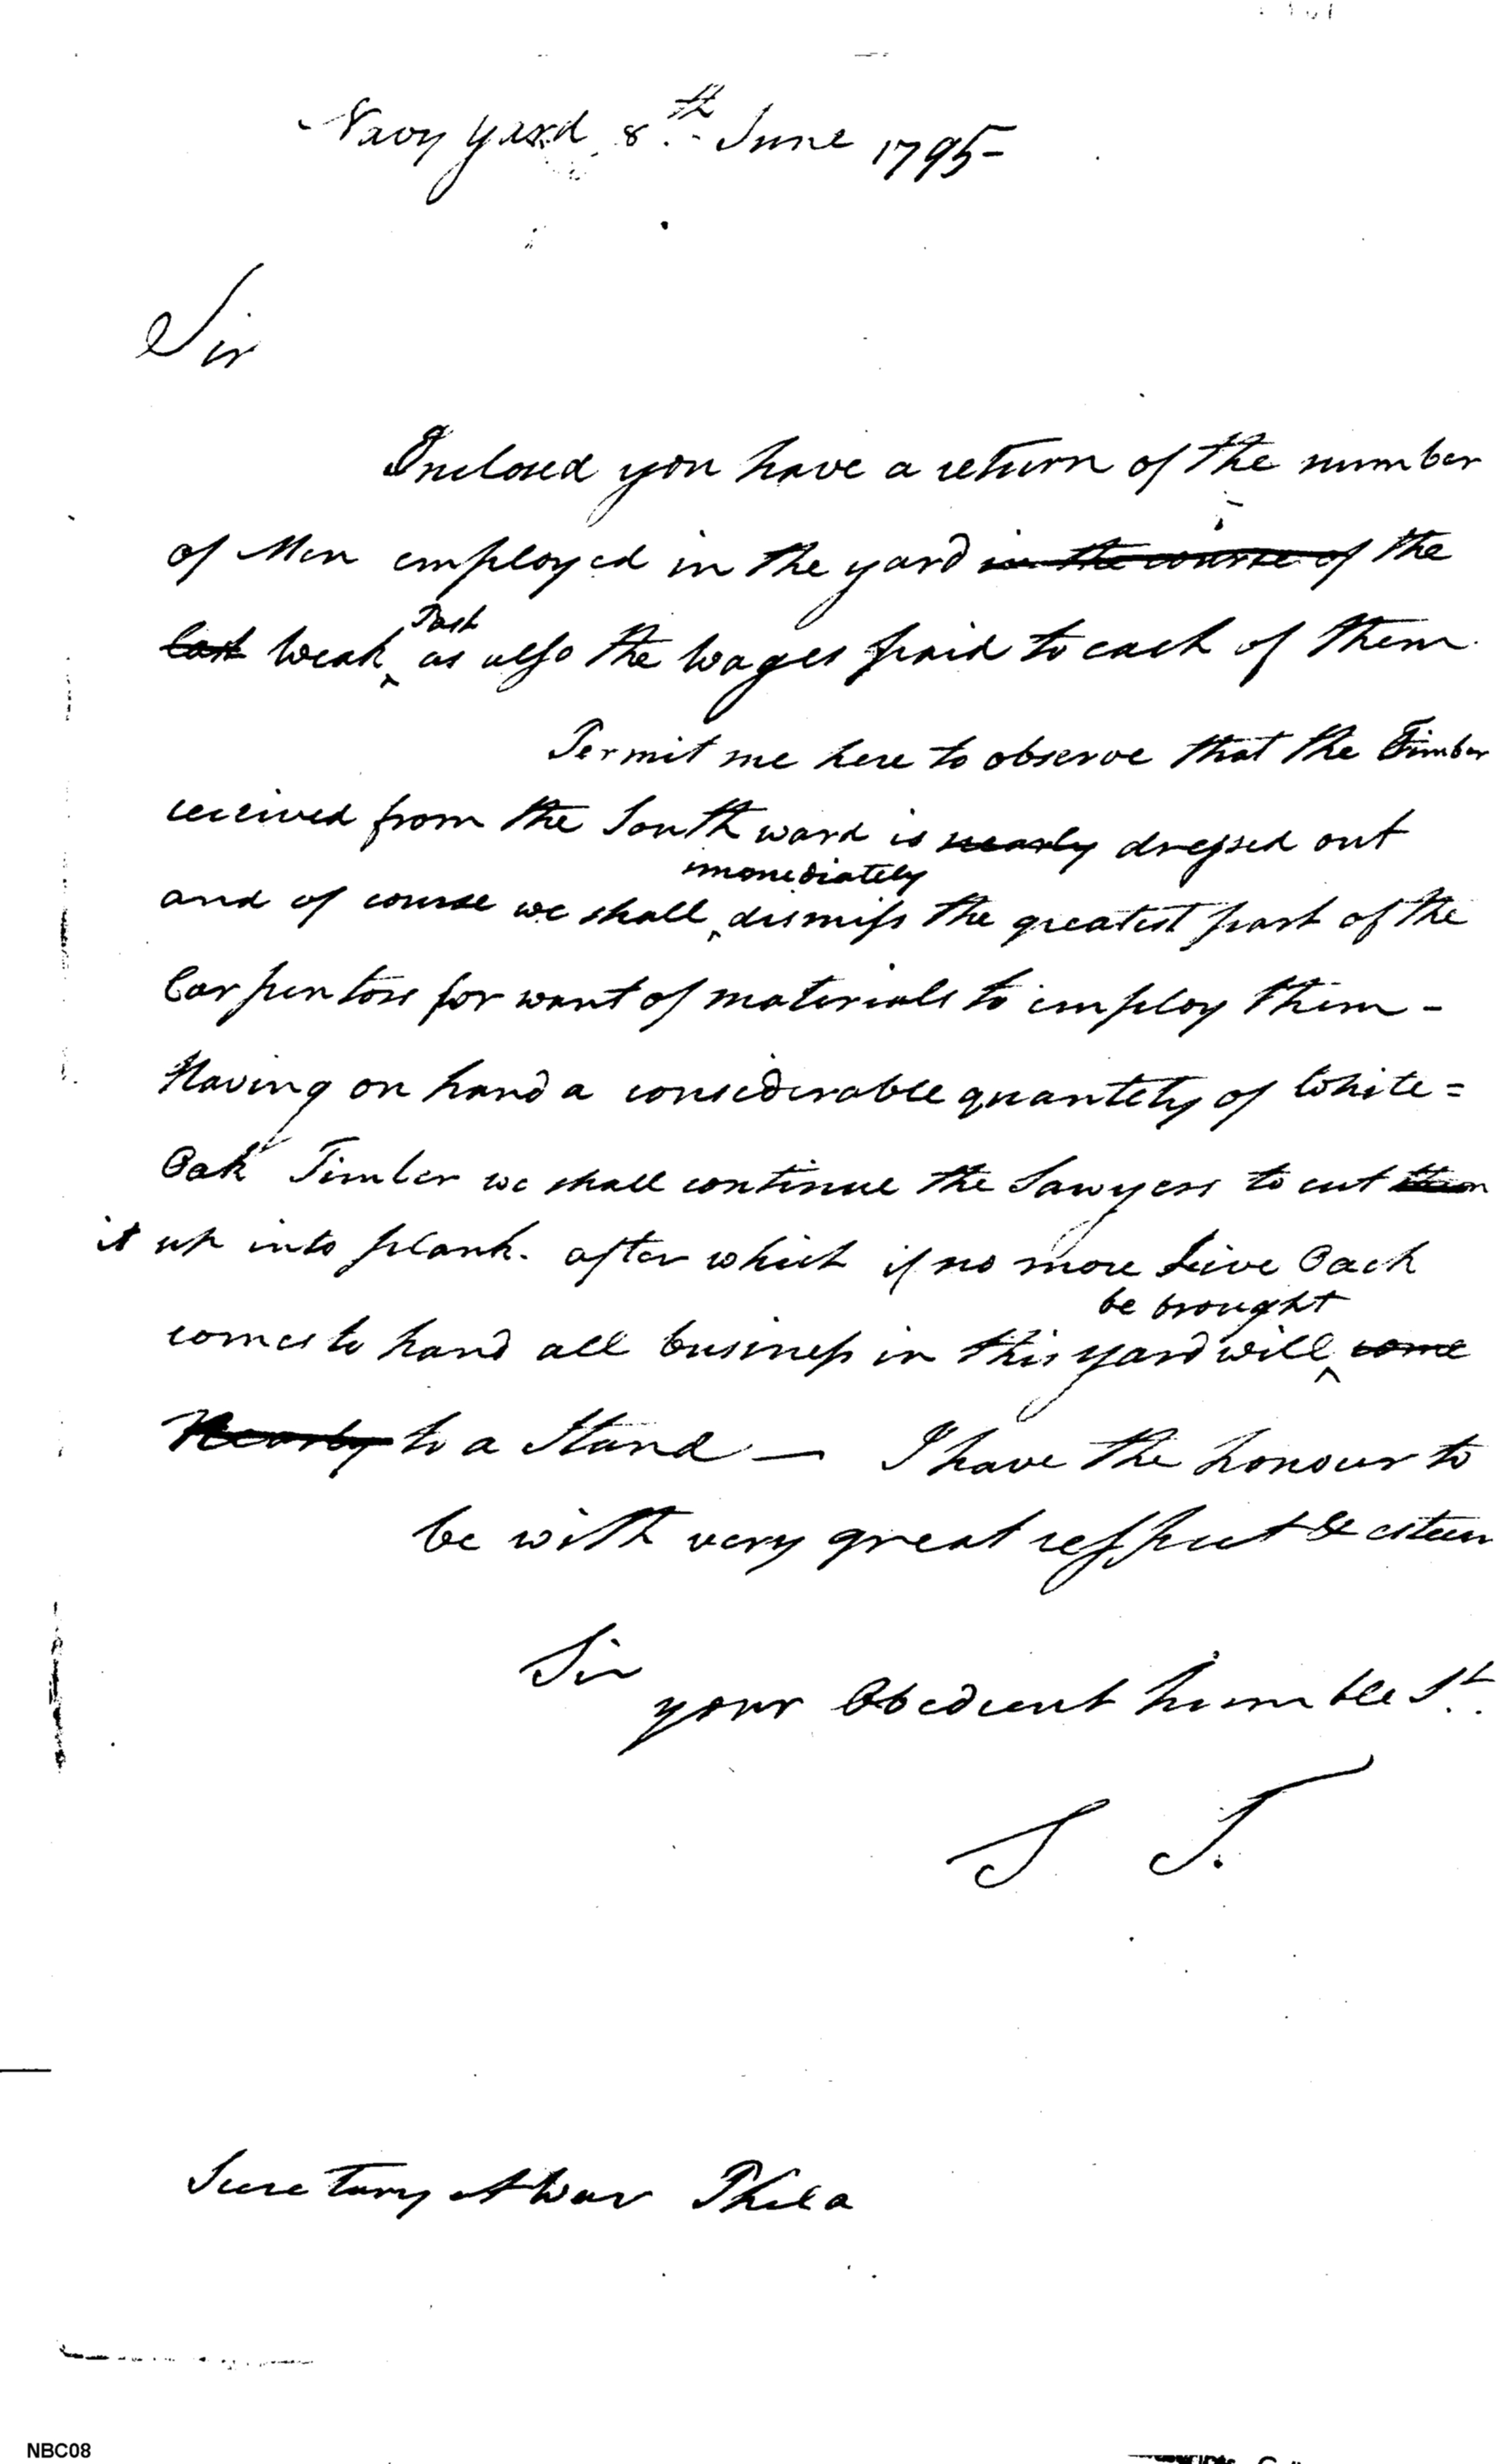 Navy yard 8th June 1795-
Sir
Inclosed you have a return of the number
of Men employed in the yard in the course of the
last Weak Past as also the Wages paid to each of them
Permit me here to observe that the Timber
received from the Southward is nearly dressed out
and of course we shall immediately dismiss the greatest part of the
Carpentors for want of materials to employ them -
Having on hand a considerable quantety of White=
Oak Timber we shall continue the Sawyers to cut them
it up into plank. after which if no more Live Oack
comes to hand all business in this yard will be brought come
Nearly to a Stand — I have the honour to
be with very great respect & esteem
Sir
your Obedient humble St.
S T.
Secretary at War Phila
NBC08